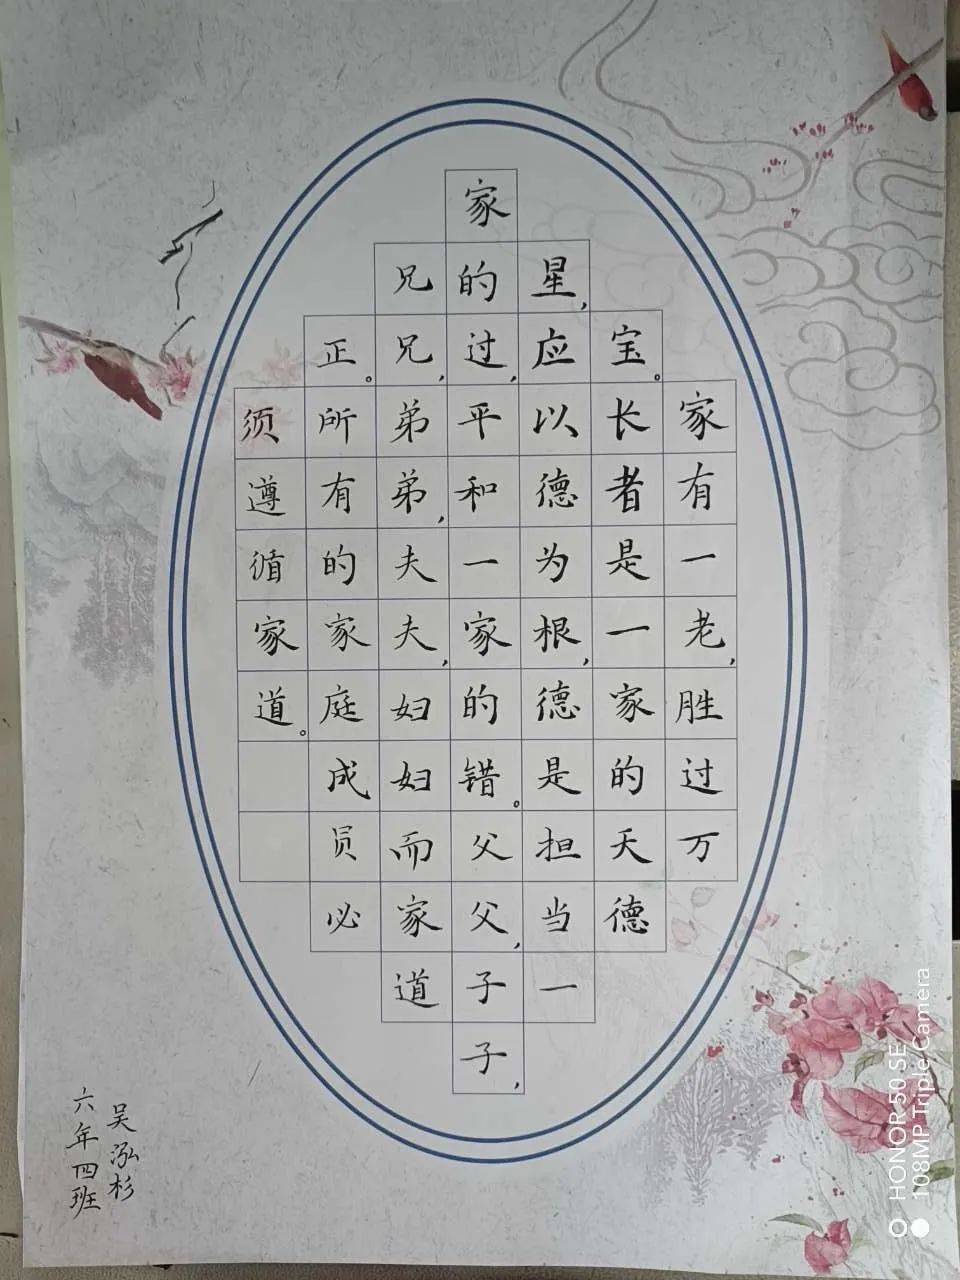 家有一老,胜过万
宝。长者是一家的天德
星,应以德为根,德是担当一
家的过,平和一家的错。父父,子子,
兄兄,弟弟,夫夫,妇妇而家道
正。所有的家庭成员必
须遵循家道。
吴泓杉
六年四班
HONOR 50 SE
108MP Triple Camera